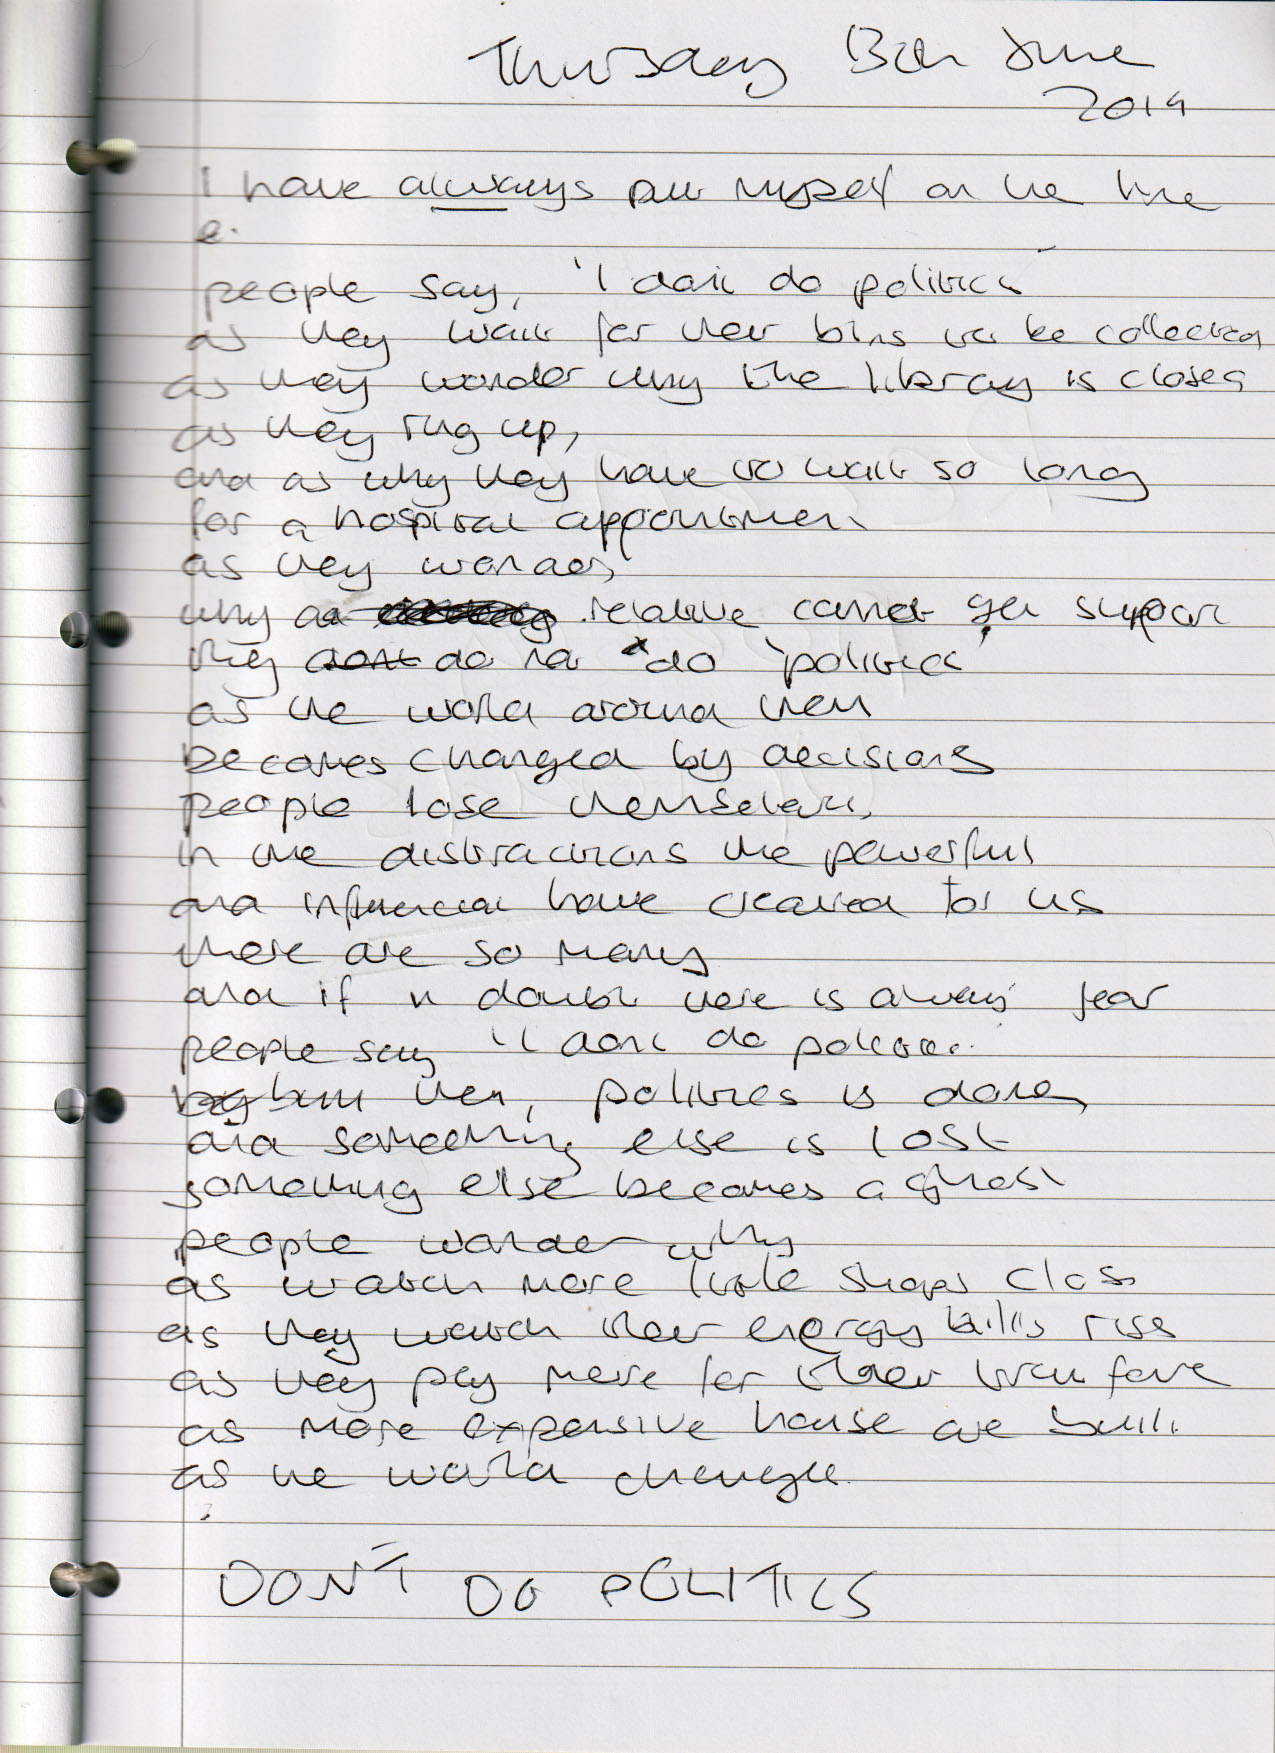 Thursday 13th June
2019
I have always put myself on the line
e.
people say, 'I don't do politics
as they wait for their bins to be collected
as they wonder why the library is closed
as they ring up,
and as why they have to wait so long
for a hospital appointment
as they wonder,
why a relative cannot get support
they dont do not do 'politics'
as the world around them
becomes changed by decisions
people lose themselves,
in the distractions the powerful
and influencial have created for us
there are so many
and if in doubt there is always fear
people say 'I dont do politics.
but then, politics is done,
and something else is lost
something else becomes a ghost
people wonder why
as watch more little shops close
as they watch their energy bills rise
as they pay more for their train fare
as more expensive house are built
as the world changes.
DON'T DO POLITICS